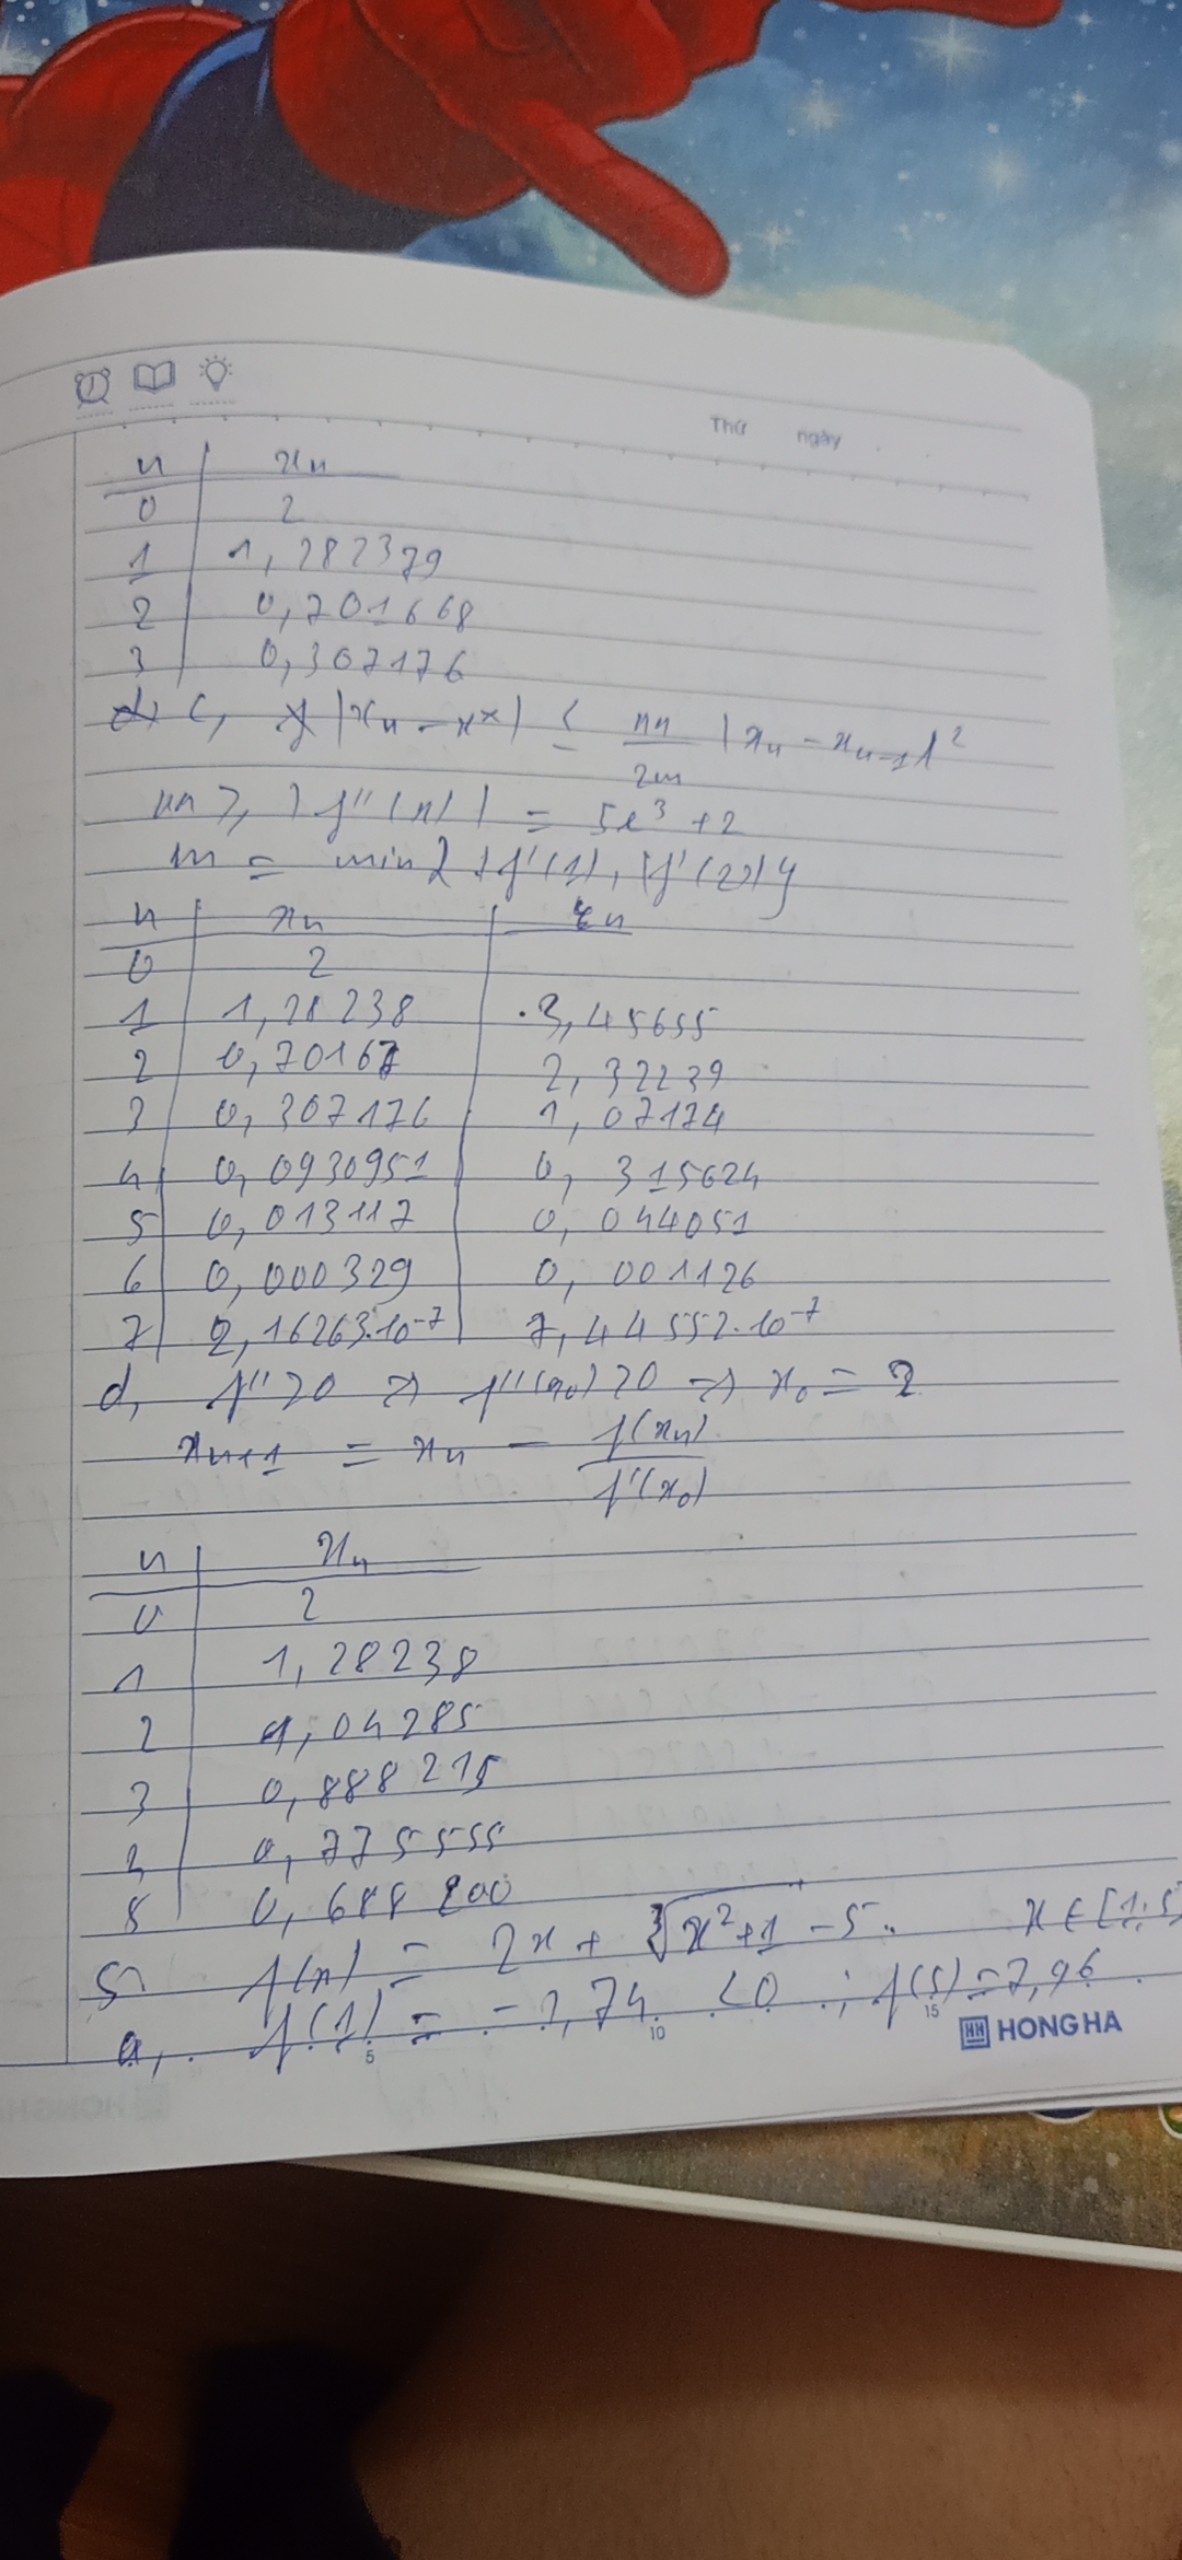 Thứ ngày
n | xn
0 | 2
1 | 1,282379
2 | 0,701668
3 | 0,307176
c, |xn - x*| ≤ M/2m |xn - xn-1|²
M ≥ |f''(x)| = 5e³ + 2
m = min { |f'(1)|, |f'(2)| }
n | xn | εn
0 | 2
1 | 1,28238 | 3,45655
2 | 0,70167 | 2,32239
3 | 0,307176 | 1,07174
4 | 0,0930951 | 0,315624
5 | 0,013117 | 0,044051
6 | 0,000329 | 0,001126
7 | 2,16263.10⁻⁷ | 7,44552.10⁻⁷
d, f'' > 0 => f''(x0) > 0 => x0 = 2
xn+1 = xn - f(xn)/f'(x0)
n | xn
0 | 2
1 | 1,28238
2 | 1,04285
3 | 0,888215
4 | 0,775555
5 | 0,688200
5) f(x) = 2x + ∛(x²+1) - 5 x ∈ [1;5]
a, f(1) = -1,74 < 0 ; f(5) = 7,96
5 10 15
HH HONG HA